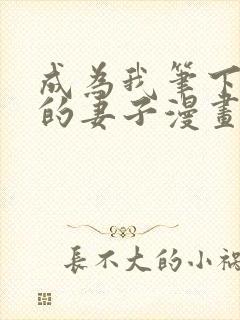 成為我筆下
的妻子漫畫
長不大的小禍